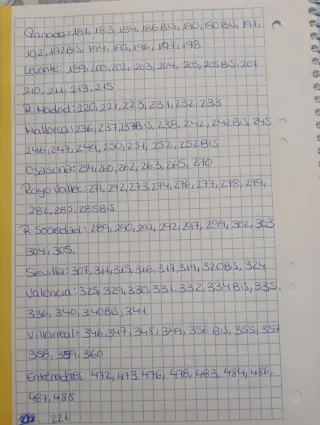 Granada: 181, 183, 184, 186 BIS, 190, 190 BIS, 191,
192, 192 BIS, 194, 195, 196, 197, 198
Levante: 199, 200, 202, 203, 204, 205, 205 BIS, 207
210, 211, 213, 215
R. Madrid: 220, 221, 223, 231, 232, 233
Mallorca: 236, 237, 237 BIS, 238, 242, 242 BIS, 245
246, 247, 249, 250, 251, 252, 252 BIS
Osasuna: 254, 260, 262, 263, 265, 270
Rayo Vallec: 271, 272, 273, 274, 276, 277, 278, 279,
282, 285, 285 BIS
R. Sociedad: 289, 290, 291, 292, 297, 299, 302, 303
304, 305.
Sevilla: 307, 311, 315, 316, 317, 319, 320 BIS, 324
Valencia: 325, 329, 330, 331, 332, 334 BIS, 335,
336, 340, 340 BIS, 341
Villarreal: 346, 347, 348, 349, 356 BIS, 355, 357
358, 359, 360
Entrenadores: 472, 473, 476, 478, 483, 484, 486,
487, 488
221